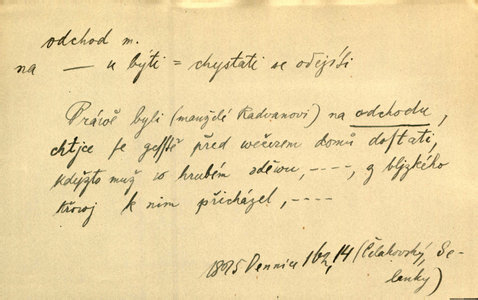 odchod m.
na — u býti = chystati se odejíti
Práwě byli (manželé Radvanovi) na odchodu,
chtjce se gesstě před wečerem domů dostati,
kdyžto muž w hrubém oděwu, ----, z bljzkého
křowj k nim přicházel, ----
1825 Dennice 1b2, 14 (Čelakovský, Se-
lanky)